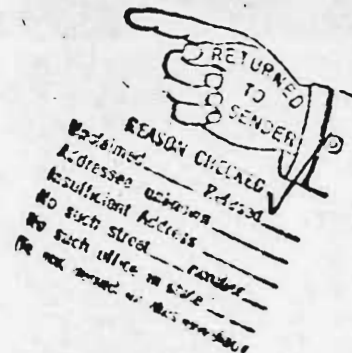 RETURNED
TO
SENDER
REASON CHECKED
Unclaimed Refused
Addressee unknown
Insufficient Address
No such street number
No such office in state
Do not remail in this envelope